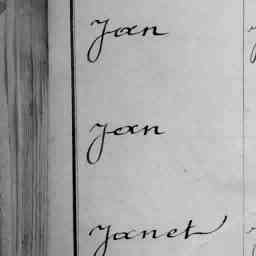 Jan
Jan
Janet